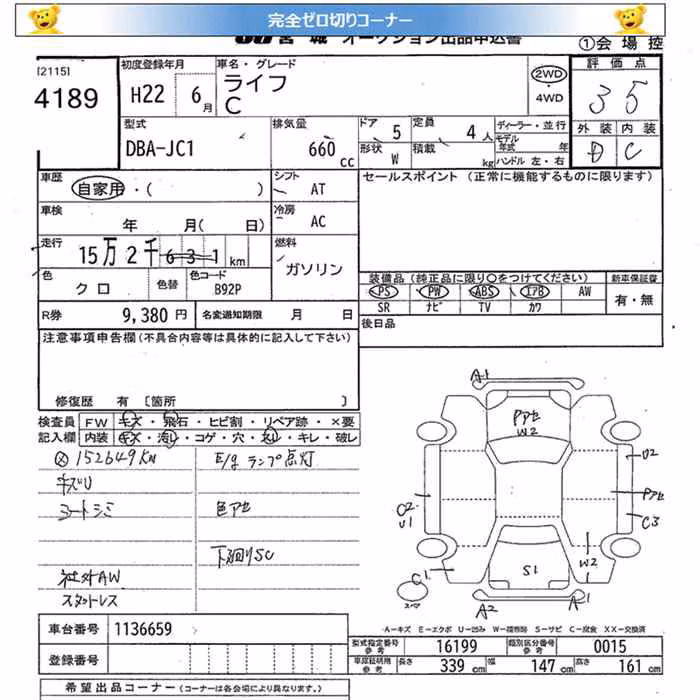 完全ゼロ切りコーナー
JU 宮城 オークション出品申込書
①会場控
[2115]
4189
初度登録年月
H22 6月
車名・グレード
ライフ
C
2WD
・4WD
評価点
35
外装 内装
D C
型式
DBA-JC1
排気量
660 cc
ドア 5
形状 W
定員 4人
積載 kg
ディーラー・並行
モデル年式 年
ハンドル 左・右
車歴
自家用・( )
シフト
AT
セールスポイント (正常に機能するものに限ります)
車検
年 月( 日)
冷房
AC
走行
15万2千631km
燃料
ガソリン
色
クロ
色替
色コード
B92P
装備品(純正品に限り○をつけてください) 新車保証書
PS PW ABS エアB AW
SR ナビ TV カワ
有・無
R券 9,380円
名変通知期限 月 日
後日品
注意事項申告欄(不具合内容等は具体的に記入して下さい)
修復歴 有 [箇所 ]
検査員記入欄
FW キズ・飛石・ヒビ割・リペア跡・×要
内装 キズ・汚レ・コゲ・穴・スレ・キレ・破レ
152649KM
E/g ランプ点灯
キズU
シミ
色アセ
下廻りSC
社外AW
スタットレス
A1
Pアセ
W2
U2
Pアセ
C3
U2
U1
W2
C1
S1
スペア
A2
A1
A-キズ E-エクボ U-凹み W-補修跡 S-サビ C-腐食 XX-交換済
車台番号 1136659
登録番号
型式指定番号 参考 16199
類別区分番号 参考 0015
車庫証明用 参考 長さ 339cm 幅 147cm 高さ 161cm
希望出品コーナー (コーナーは各会場により異なります。)